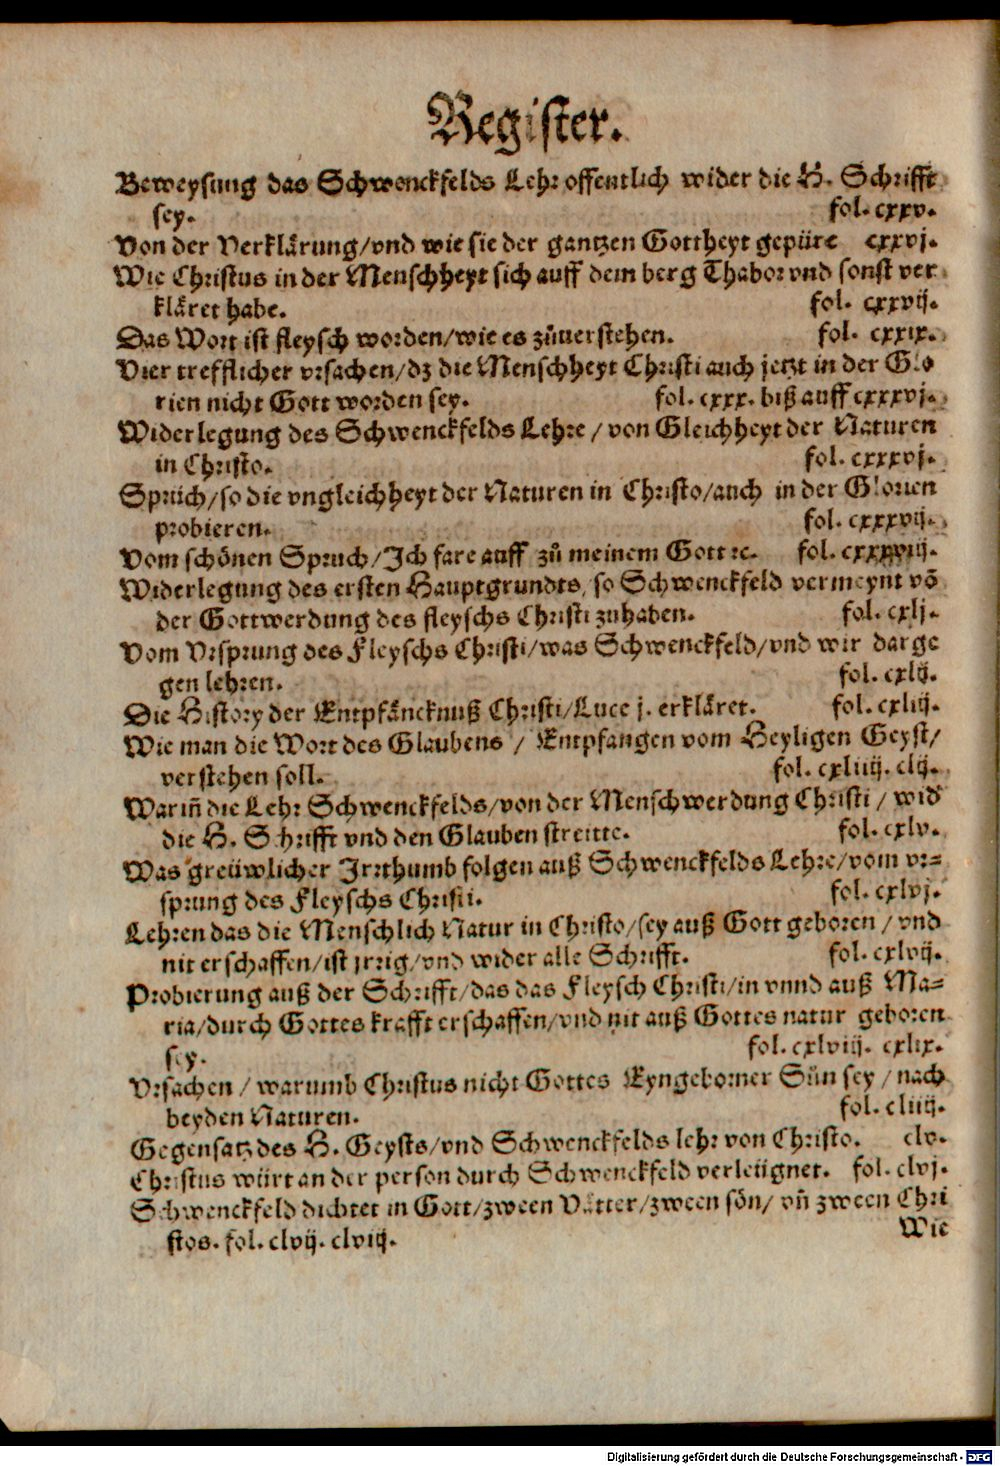 Register.
Beweysung das Schwenckfelds Lehr offentlich wider die H. Schrifft
sey. fol. cxxv.
Von der Verklärung/vnd wie sie der gantzen Gottheyt gepüre cxxvj.
Wie Christus in der Menschheyt sich auff dem berg Thabor vnd sonst ver
kläret habe. fol. cxxvij.
Das Wort ist fleysch worden/wie es zůuerstehen. fol. cxxix.
Vier trefflicher vrsachen/dz die Menschheyt Christi auch jetzt in der Glo
rien nicht Gott worden sey. fol. cxxx. biß auff cxxxvj.
Widerlegung des Schwenckfelds Lehre / von Gleichheyt der Naturen
in Christo. fol. cxxxvj.
Sprüch/so die vngleichheyt der Naturen in Christo/auch in der Glorien
probieren. fol. cxxxvij.
Vom schönen Spruch/Ich fare auff zů meinem Gott ꝛc. fol. cxxxviij.
Widerlegung des ersten Hauptgrundts, so Schwenckfeld vermeynt võ
der Gottwerdung des fleyschs Christi zuhaben. fol. cxlj.
Vom Vrsprung des Fleyschs Christi/was Schwenckfeld/vnd wir darge
gen lehren. fol. cxlij.
Die History der Entpfäncknuß Christi/Luce j. erkläret. fol. cxliij.
Wie man die Wort des Glaubens / Entpfangen vom Heyligen Geyst/
verstehen soll. fol. cxliiij. clij.
Wariñ die Lehr Schwenckfelds/von der Menschwerdung Christi / wid
die H. Schrifft vnd den Glauben streitte. fol. cxlv.
Was greüwlicher Irrthumb folgen auß Schwenckfelds Lehre/vom vr=
sprung des Fleyschs Christi. fol. cxlvj.
Lehren das die Menschlich Natur in Christo/sey auß Gott geboren / vnd
nit erschaffen/ist jrrig/vnd wider alle Schrifft. fol. cxlvij.
Probierung auß der Schrifft/das das Fleysch Christi/in vnnd auß Ma=
ria/durch Gottes krafft erschaffen/vnd nit auß Gottes natur geboren
sey. fol. cxlviij. cxlix.
Vrsachen / warumb Christus nicht Gottes Eyngeborner Sůn sey / nach
beyden Naturen. fol. cliiij.
Gegensatz des H. Geysts/vnd Schwenckfelds lehr von Christo. clv.
Christus würt an der person durch Schwenckfeld verleügnet. fol. clvj.
Schwenckfeld dichtet in Gott/zween Vätter/zween sön/ vñ zween Chri
stos. fol. clvij. clviij. Wie
Digitalisierung gefördert durch die Deutsche Forschungsgemeinschaft - DFG